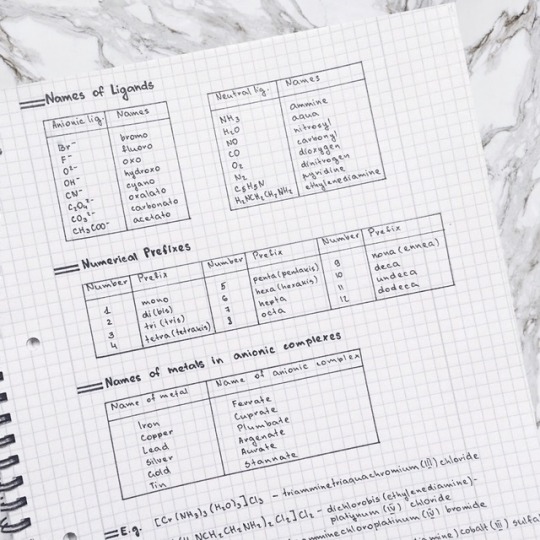 Names of Ligands
Anionic lig. Names
Br⁻ bromo
F⁻ fluoro
O²⁻ oxo
OH⁻ hydroxo
CN⁻ cyano
C₂O₄²⁻ oxalato
CO₃²⁻ carbonato
CH₃COO⁻ acetato
Neutral lig. Names
NH₃ ammine
H₂O aqua
NO nitrosyl
CO carbonyl
O₂ dioxygen
N₂ dinitrogen
C₅H₅N pyridine
H₂NCH₂CH₂NH₂ ethylenediamine
Numerical Prefixes
Number Prefix Number Prefix Number Prefix
1 mono 5 penta (pentakis) 9 nona (ennea)
2 di (bis) 6 hexa (hexakis) 10 deca
3 tri (tris) 7 hepta 11 undeca
4 tetra (tetrakis) 8 octa 12 dodeca
Names of metals in anionic complexes
Name of metal Name of anionic complex
Iron Ferrate
Copper Cuprate
Lead Plumbate
Silver Argenate
Gold Aurate
Tin Stannate
E.g. [Cr(NH₃)₃(H₂O)₃]Cl₃ - triamminetriaquachromium (III) chloride
NCH₂CH₂NH₂)₂Cl₂]Cl₂ - dichlorobis (ethylenediamine)-
platynum (IV) chloride
amminechloroplatinum (IV) bromide
diamine) cobalt (III) sulfa